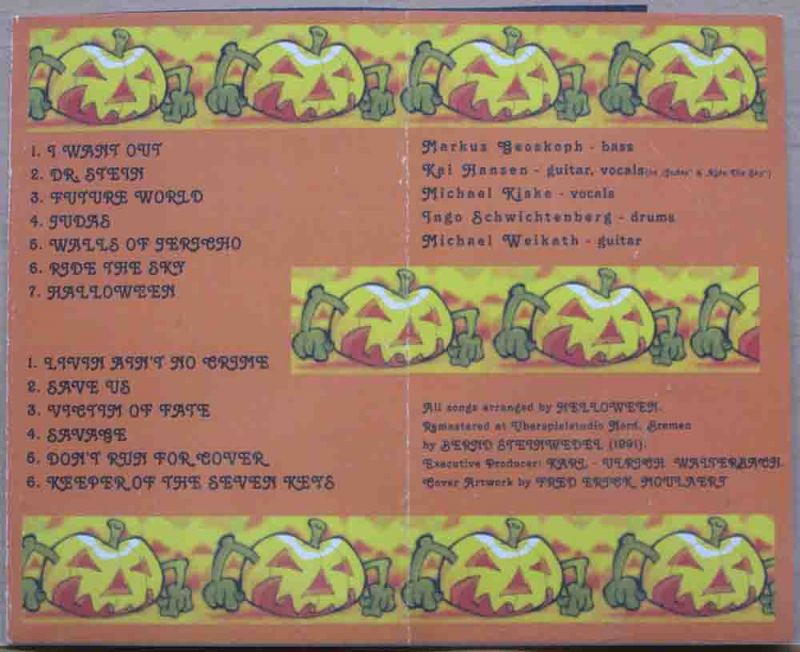 1. I WANT OUT
2. DR. STEIN
3. FUTURE WORLD
4. JUDAS
5. WALLS OF JERICHO
6. RIDE THE SKY
7. HALLOWEEN
1. LIVIN AIN'T NO CRIME
2. SAVE US
3. VICTIM OF FATE
4. SAVAGE
5. DON'T RUN FOR COVER
6. KEEPER OF THE SEVEN KEYS
Markus Geoskoph - bass
Kai Hansen - guitar, vocals (on „Judas" & „Ride The Sky")
Michael Kiske - vocals
Ingo Schwichtenberg - drums
Michael Weikath - guitar
All songs arranged by HELLOWEEN.
Remastered at Uberspielstudio Nord, Bremen
by BERND STEINWEDEL (1991).
Executive Producer: KARL - ULRICH WALTERBACH.
Cover Artwork by FRED ERICK MOULAERT